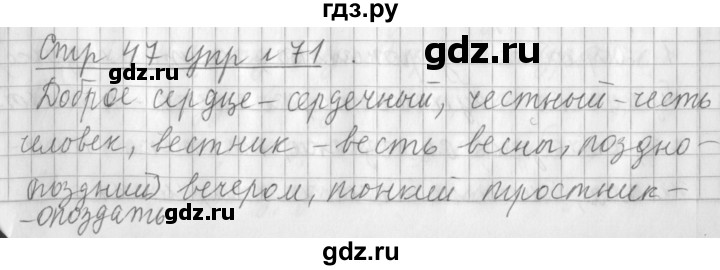 гдз.ру
Стр 47 упр № 71.
gdz.ru
gdz.ru
Доброе сердце – сердечный, честный – честь
человек, вестник – весть весны, поздно –
поздний) вечером, тонкий тростник –
– опоздать
gdz.ru
gdz.ru
gdz.ru